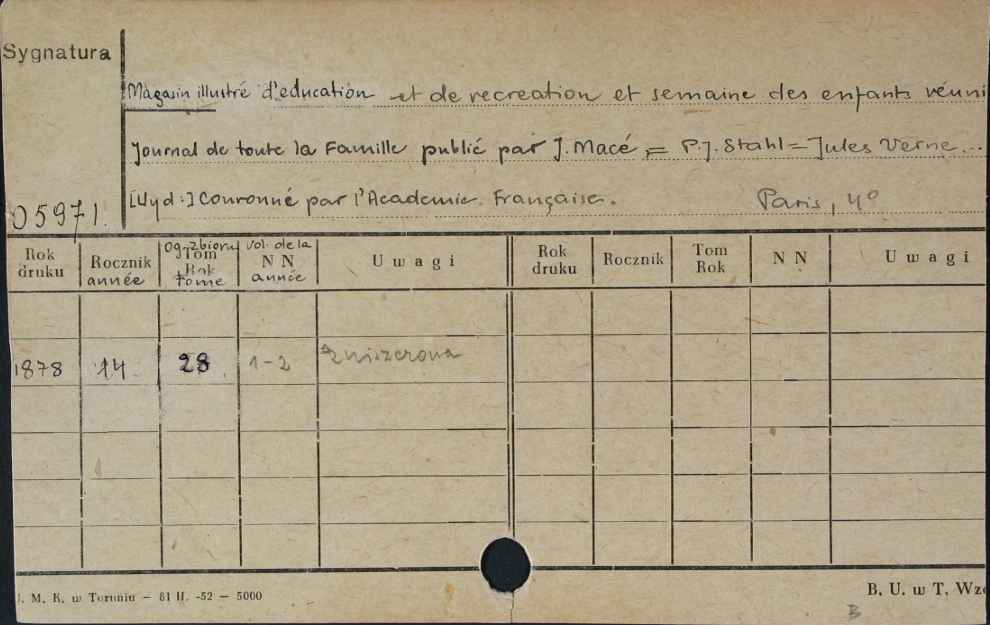 Sygnatura
Magasin illustré d'education et de recreation et semaine des enfants réuni
Journal de toute la Famille publié par J. Macé, = P. J. Stahl = Jules Verne...
[Wyd:] Couronné par l'Academie Française. Paris, 4°
05971.
Rok druku Rocznik année Og. zbioru Tom Rok tome vol. de la NN année Uwagi Rok druku Rocznik Tom Rok NN Uwagi
1878 14 28 1-2 zniszczona
J. M. K. w Toruniu – 81 II. -52 – 5000 B. U. w T. Wzo
B